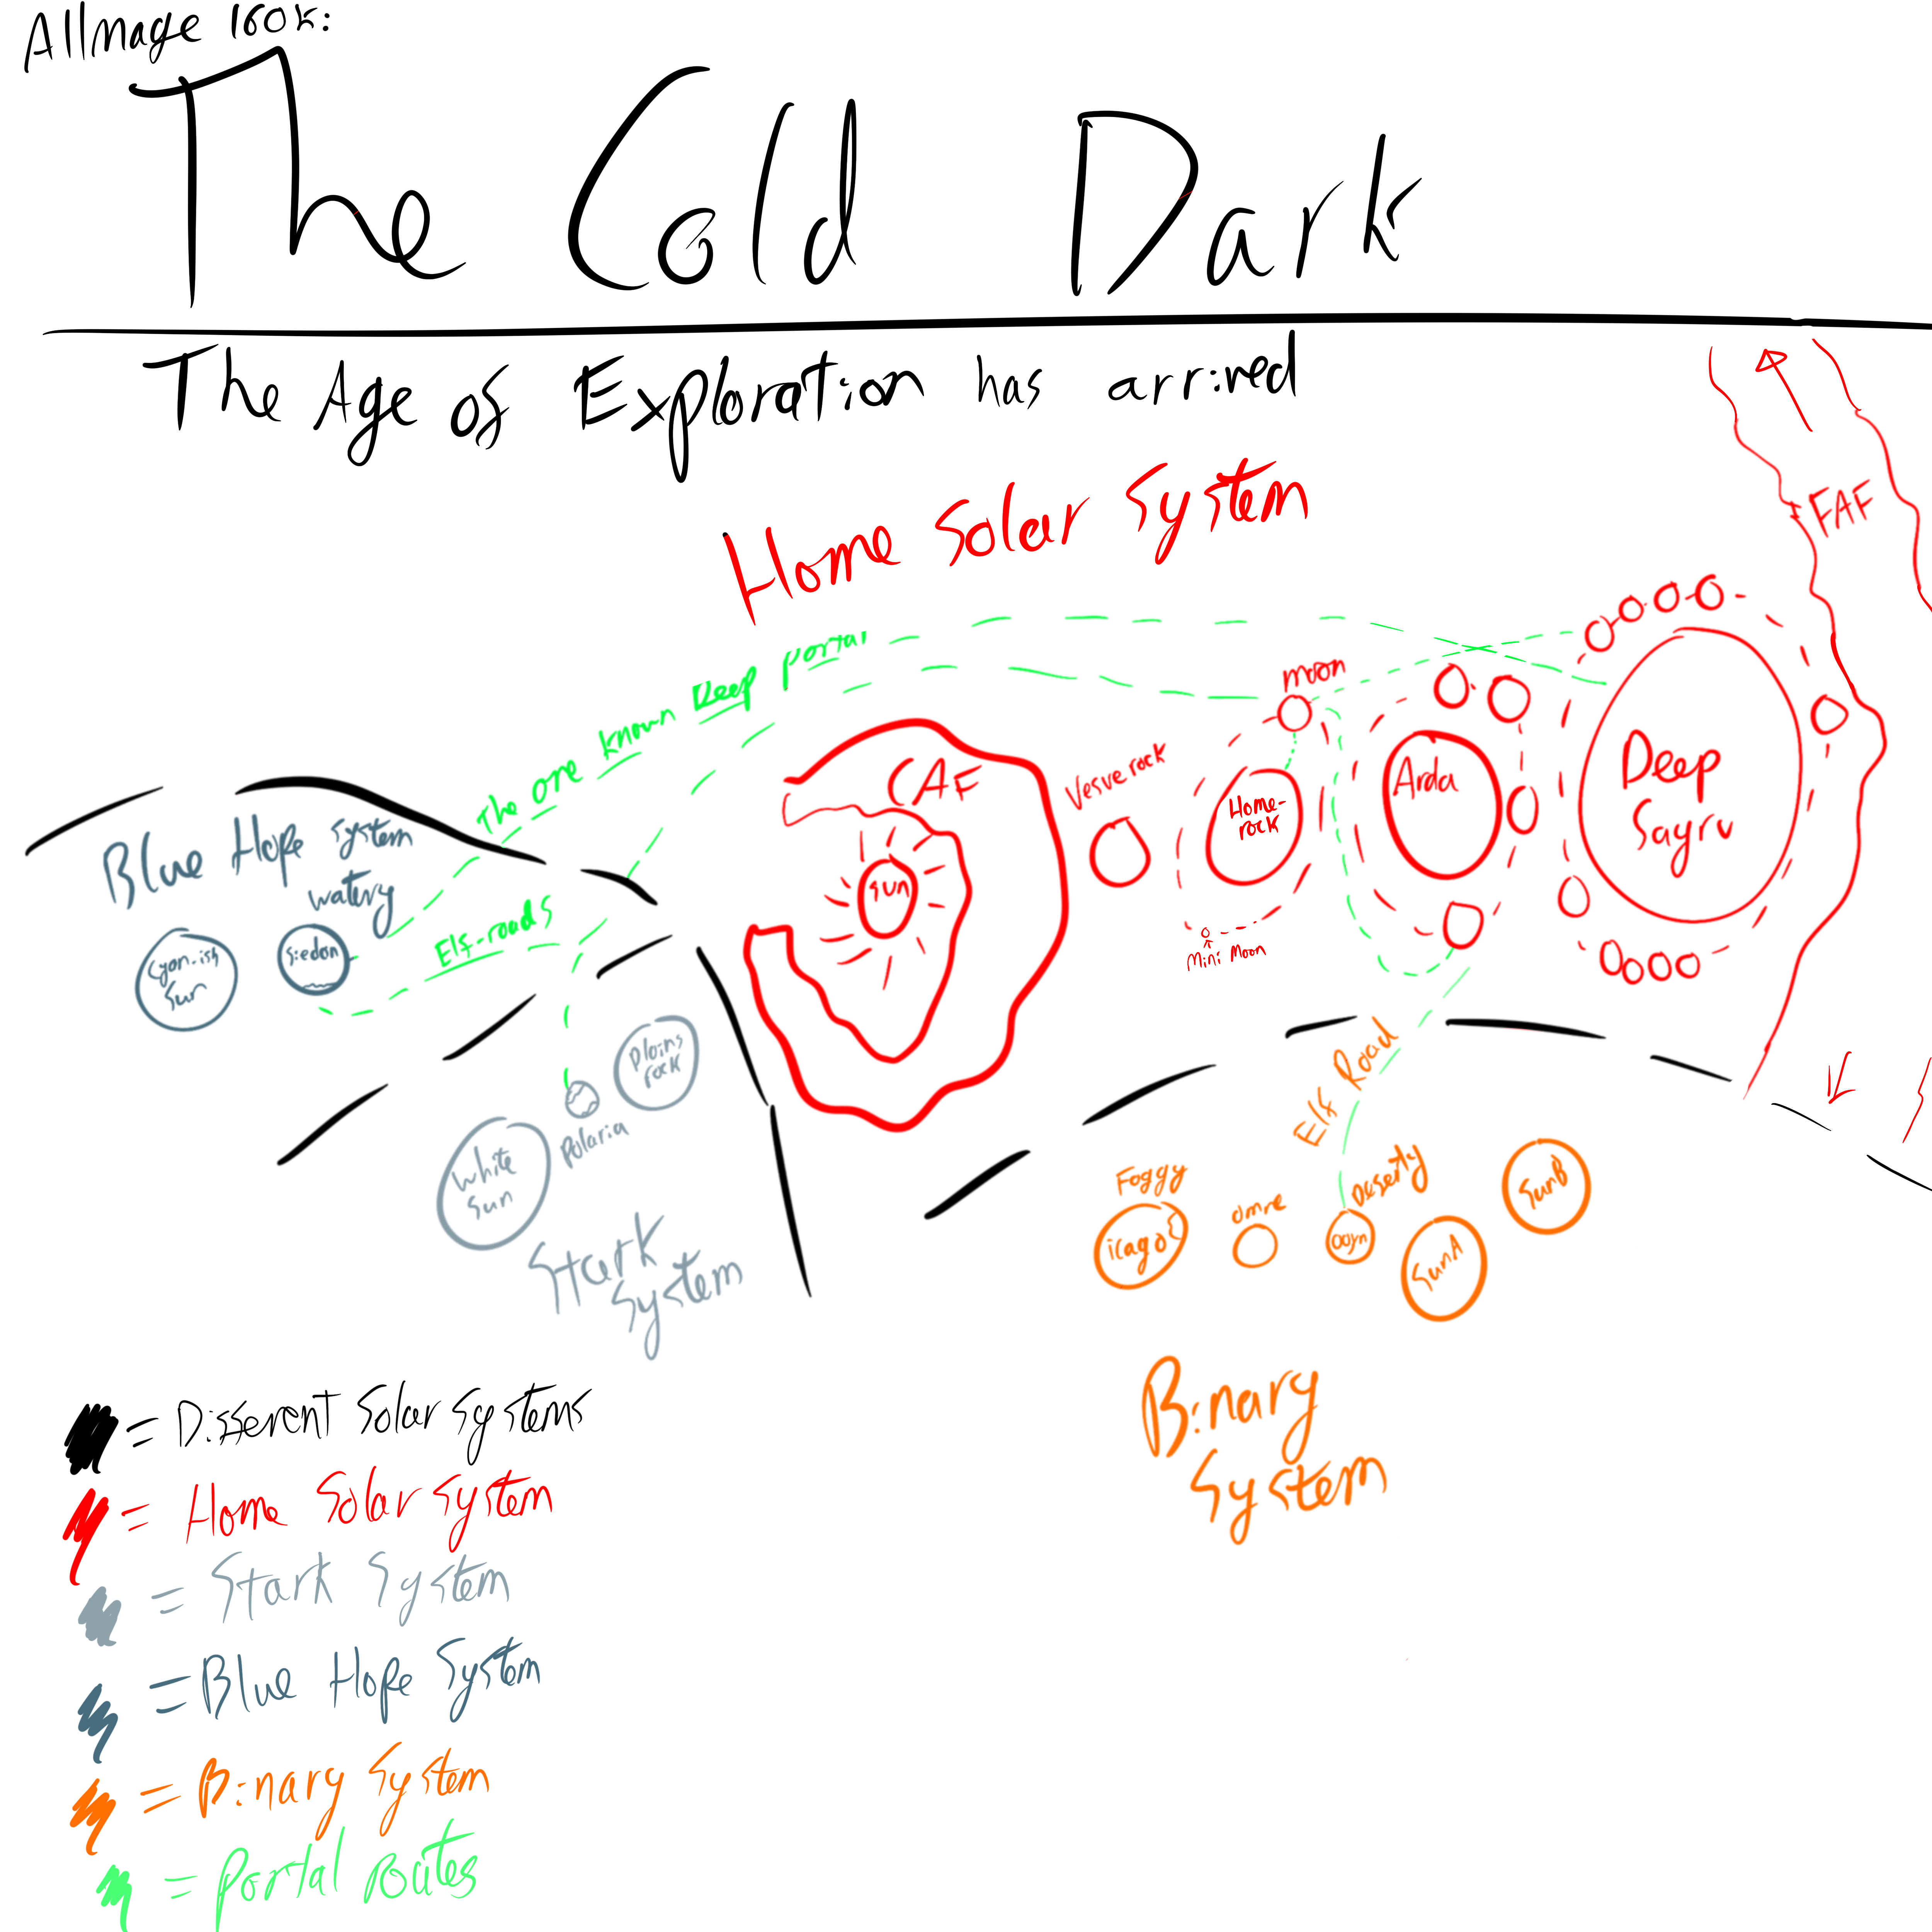 AllMage 160k:
The Cold Dark
The Age of Exploration has arrived
Home Solar System
FAF
The one known Deep portal
moon
Vesverock
CAF
sun
Home-
rock
Arda
Deep
Sayru
Mini Moon
Blue Hope System
watery
Cyan-ish
Sun
Siedon
Elf-roads
Plains
rock
Polaria
White
Sun
Stark
System
Elf Road
Foggy
icago
omre
Deserty
ooyn
Sun A
Sun B
Binary
System
= Different Solar Systems
= Home Solar System
= Stark System
= Blue Hope System
= Binary System
= Portal Routes